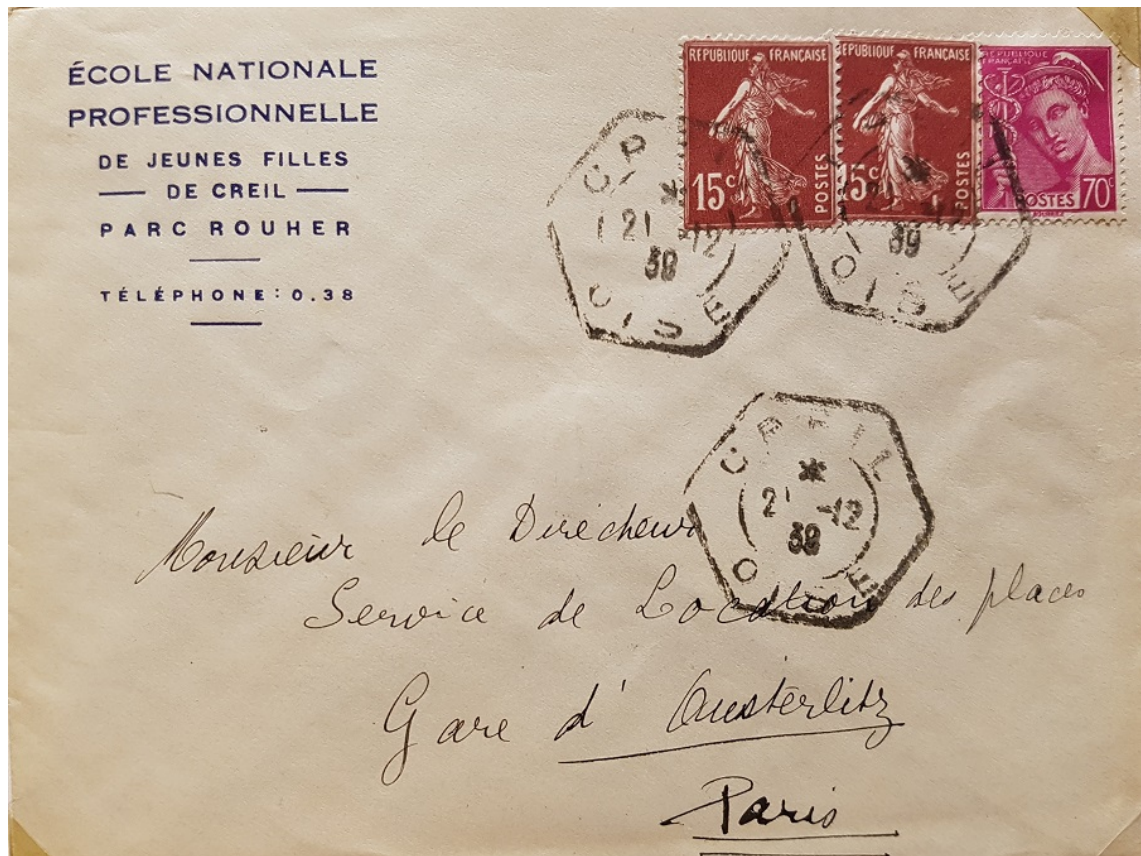 ÉCOLE NATIONALE
PROFESSIONNELLE
DE JEUNES FILLES
DE CREIL
PARC ROUHER
TÉLÉPHONE : 0.38
REPUBLIQUE FRANÇAISE
15c
POSTES
REPUBLIQUE FRANÇAISE
15c
POSTES
REPUBLIQUE
FRANÇAISE
POSTES 70c
21 -12
39
OISE
39
OISE
CREIL
21 -12
39
OISE
Monsieur le Directeur
Service de Location des places
Gare d'Austerlitz
Paris